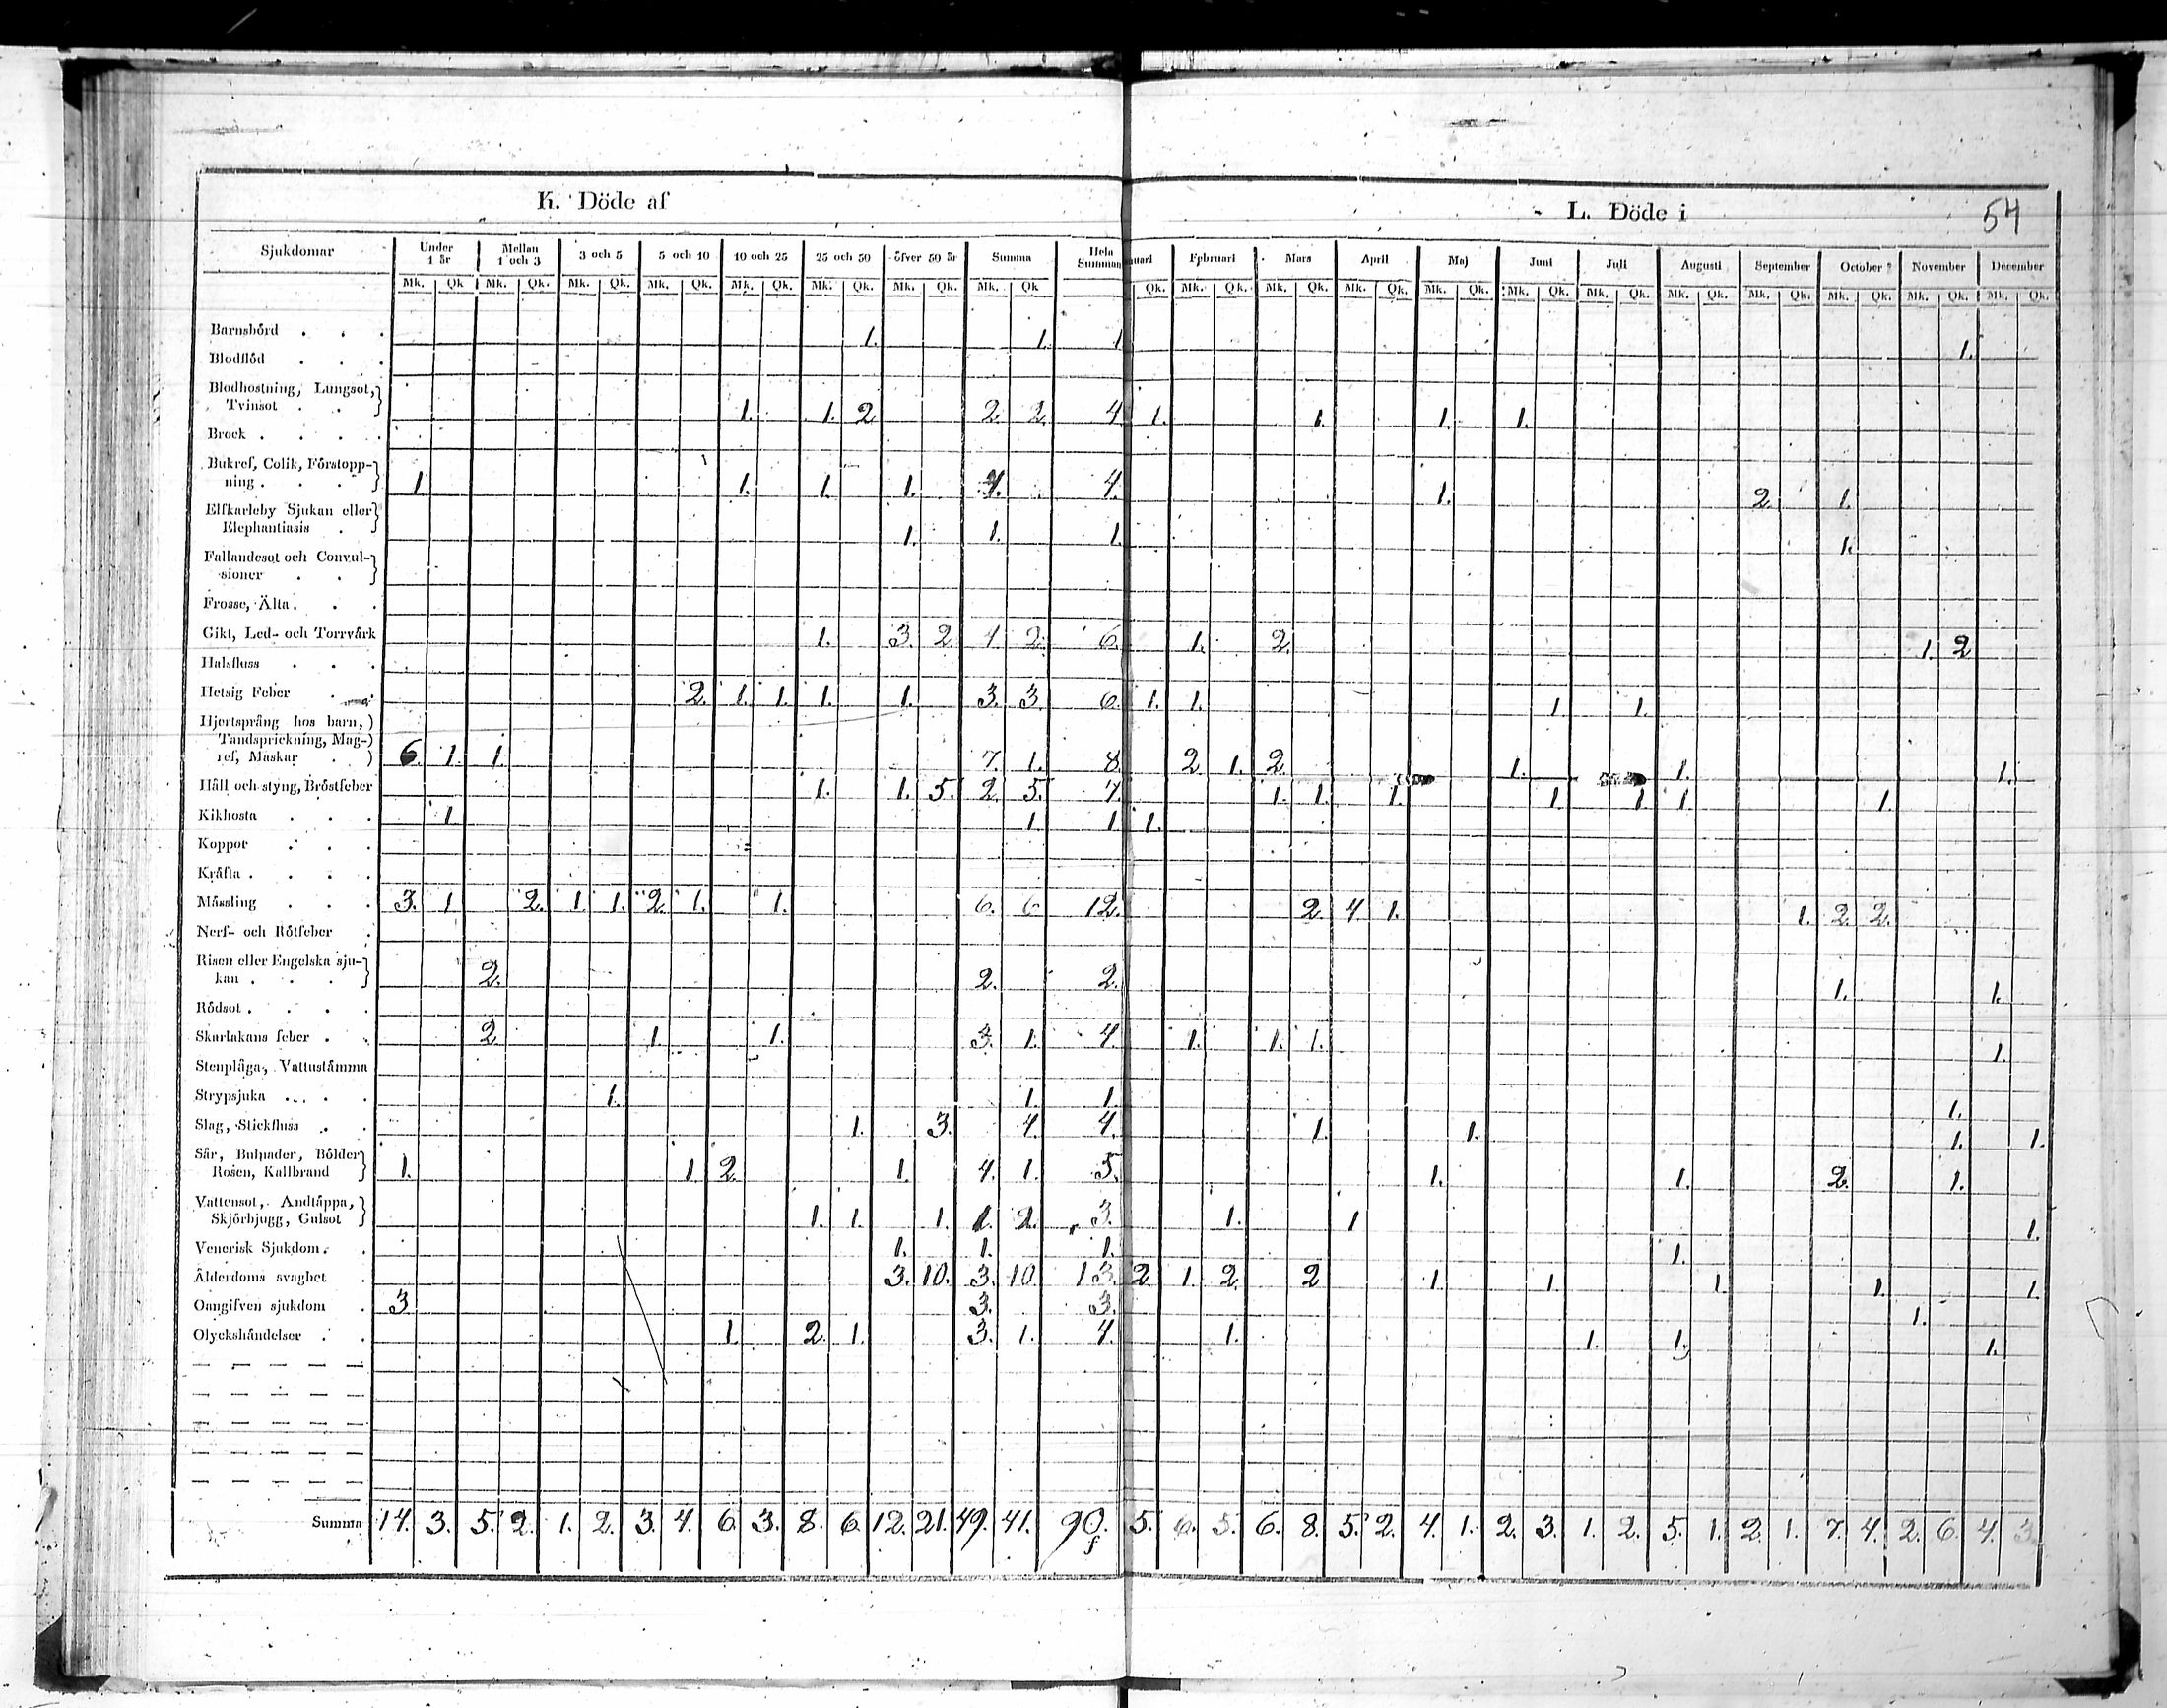 54
K. Döde af
L. Döde i
Sjukdomar Under 1 år Mellan 1 och 3 3 och 5 5 och 10 10 och 25 25 och 50 öfver 50 år Summa Hela Summan nuari Februari Mars April Maj Juni Juli Augusti September October November December
Mk. Qk Mk. Qk. Mk. Qk. Mk. Qk. Mk. Qk. Mk. Qk. Mk. Qk. Mk. Qk Qk. Mk. Qk. Mk. Qk. Mk. Qk. Mk. Qk. Mk. Qk. Mk. Qk. Mk. Qk. Mk. Qk. Mk. Qk. Mk. Qk. Mk. Qk.
Barnsbörd . . . 1. 1. 1 1.
Blodflöd . . .
Blodhostning, Lungsot,
Tvinsot . . 1. 1. 2 2. 2. 4. 1. 1. 1. 1.
Brock . . . .
Bukref, Colik, Förstopp-
ning . . . 1. 1. 1. 1. 4. 4. 1. 2. 1.
Elfkarleby Sjukan eller
Elephantiasis . 1. 1. 1. 1.
Fallandesot och Convul-
sioner . .
Frosse, Älta . . .
Gikt, Led- och Torrvärk 1. 3. 2. 4. 2. 6. 1. 2. 1. 2
Halsfluss . . .
Hetsig Feber . . 2. 1. 1. 1. 1. 3. 3. 6. 1. 1. 1. 1.
Hjertsprång hos barn,
Tandsprickning, Mag-
ref, Maskar . 6. 1. 1. 7. 1. 8. 2. 1. 2. 1. 1. 1.
Håll och styng, Bröstfeber 1. 1. 5. 2. 5. 7. 1. 1. 1. 1. 1 1 1.
Kikhosta . . . 1. 1. 1. 1.
Koppor . . .
Kräfta . . . .
Mässling . . . 3. 1 2. 1. 1. 2. 1. 1. 6. 6 12. 2. 4 1. 1. 2. 2.
Nerf- och Rötfeber .
Risen eller Engelska sju-
kan . . . 2. 2. 2. 1. 1.
Rödsot . . . .
Skarlakans feber . . 2 1. 1. 3. 1. 4. 1. 1. 1. 1.
Stenplåga, Vattustämma
Strypsjuka . . . 1. 1. 1. 1.
Slag, Stickfluss . . 1. 3. 4. 4. 1. 1. 1. 1.
Sår, Bulnader, Bölder
Rosen, Kallbrand 1. 1 2. 1. 4. 1. 5. 1. 1. 2. 1.
Vattensot, Andtäppa,
Skjörbjugg, Gulsot 1. 1. 1. 1. 2. 3. 1. 1 1.
Venerisk Sjukdom . . 1. 1. 1. 1.
Ålderdoms svaghet . 3. 10. 3. 10. 13. 2. 1. 2. 2 1. 1. 1. 1. 1.
Oangifven sjukdom . 3 3. 3. 1.
Olyckshändelser . . 1. 2. 1. 3. 1. 4. 1. 1. 1. 1.
Summa 14. 3. 5. 2. 1. 2. 3. 4. 6. 3. 8. 6. 12. 21. 49. 41. 90. 5. 6. 5. 6. 8. 5. 2. 4. 1. 2. 3. 1. 2. 5. 1. 2. 1. 7. 4. 2. 6. 4. 3.